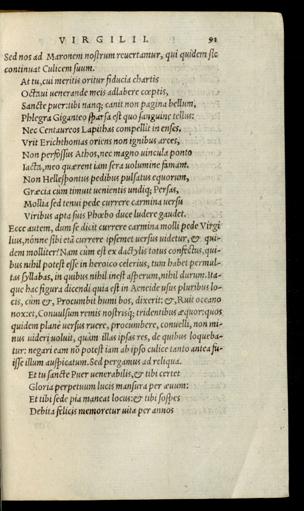 VIRGILII. 92
Sed nos ad Maronem nostrum reuertamur, qui quidem sic
continuat Culicem suum.
At tu, cui meritis oritur fiducia chartis
Octaui uenerande meis adlabere cœptis,
Sancte puer: tibi nanq; canit non pagina bellum,
Phlegra Giganteo sparsa est quo sanguine tellus:
Nec Centaureos Lapithas compellit in enses,
Vrit Erichthonias oriens non ignibus arces,
Non perfossus Athos, nec magno uincula ponto
Iacta, meo quærent iam sera uolumine famam.
Non Hellesponti pedibus pulsatus equorum,
Græcia cum timuit uenientis undiq; Persas,
Mollia sed tenui pede currere carmina uersu
Viribus apta suis Phœbo duce ludere gaudet.
Ecce autem, dum se dicit currere carmina molli pede Virgi
lius, nónne sibi etiã currere ipsemet uersus uidetur, & qui-
dem molliter? Nam cùm est ex dactylis totus confectus, qui-
bus nihil potest esse in heroico celerius, tum habet permul-
tas syllabas, in quibus nihil inest asperum, nihil durum. Ita-
que hac figura dicendi quia est in Aeneide usus pluribus lo-
cis, cum &, Procumbit humi bos, dixerit: &, Ruit oceano
nox: et, Conuulsum remis rostrisq; tridentibus æquor: quos
quidem planè uersus ruere, procumbere, conuelli, non mi-
nus uideri uoluit, quàm illas ipsas res, de quibus loqueba-
tur: negari eam nō potest iam ab ipso culice tanto antea fu-
isse illum auspicatum. Sed pergamus ad reliqua.
Et tu sancte Puer uenerabilis, & tibi certet
Gloria perpetuum lucis mansura per æuum:
Et tibi sede pia maneat locus: & tibi sospes
Debita felicis memoretur uita per annos